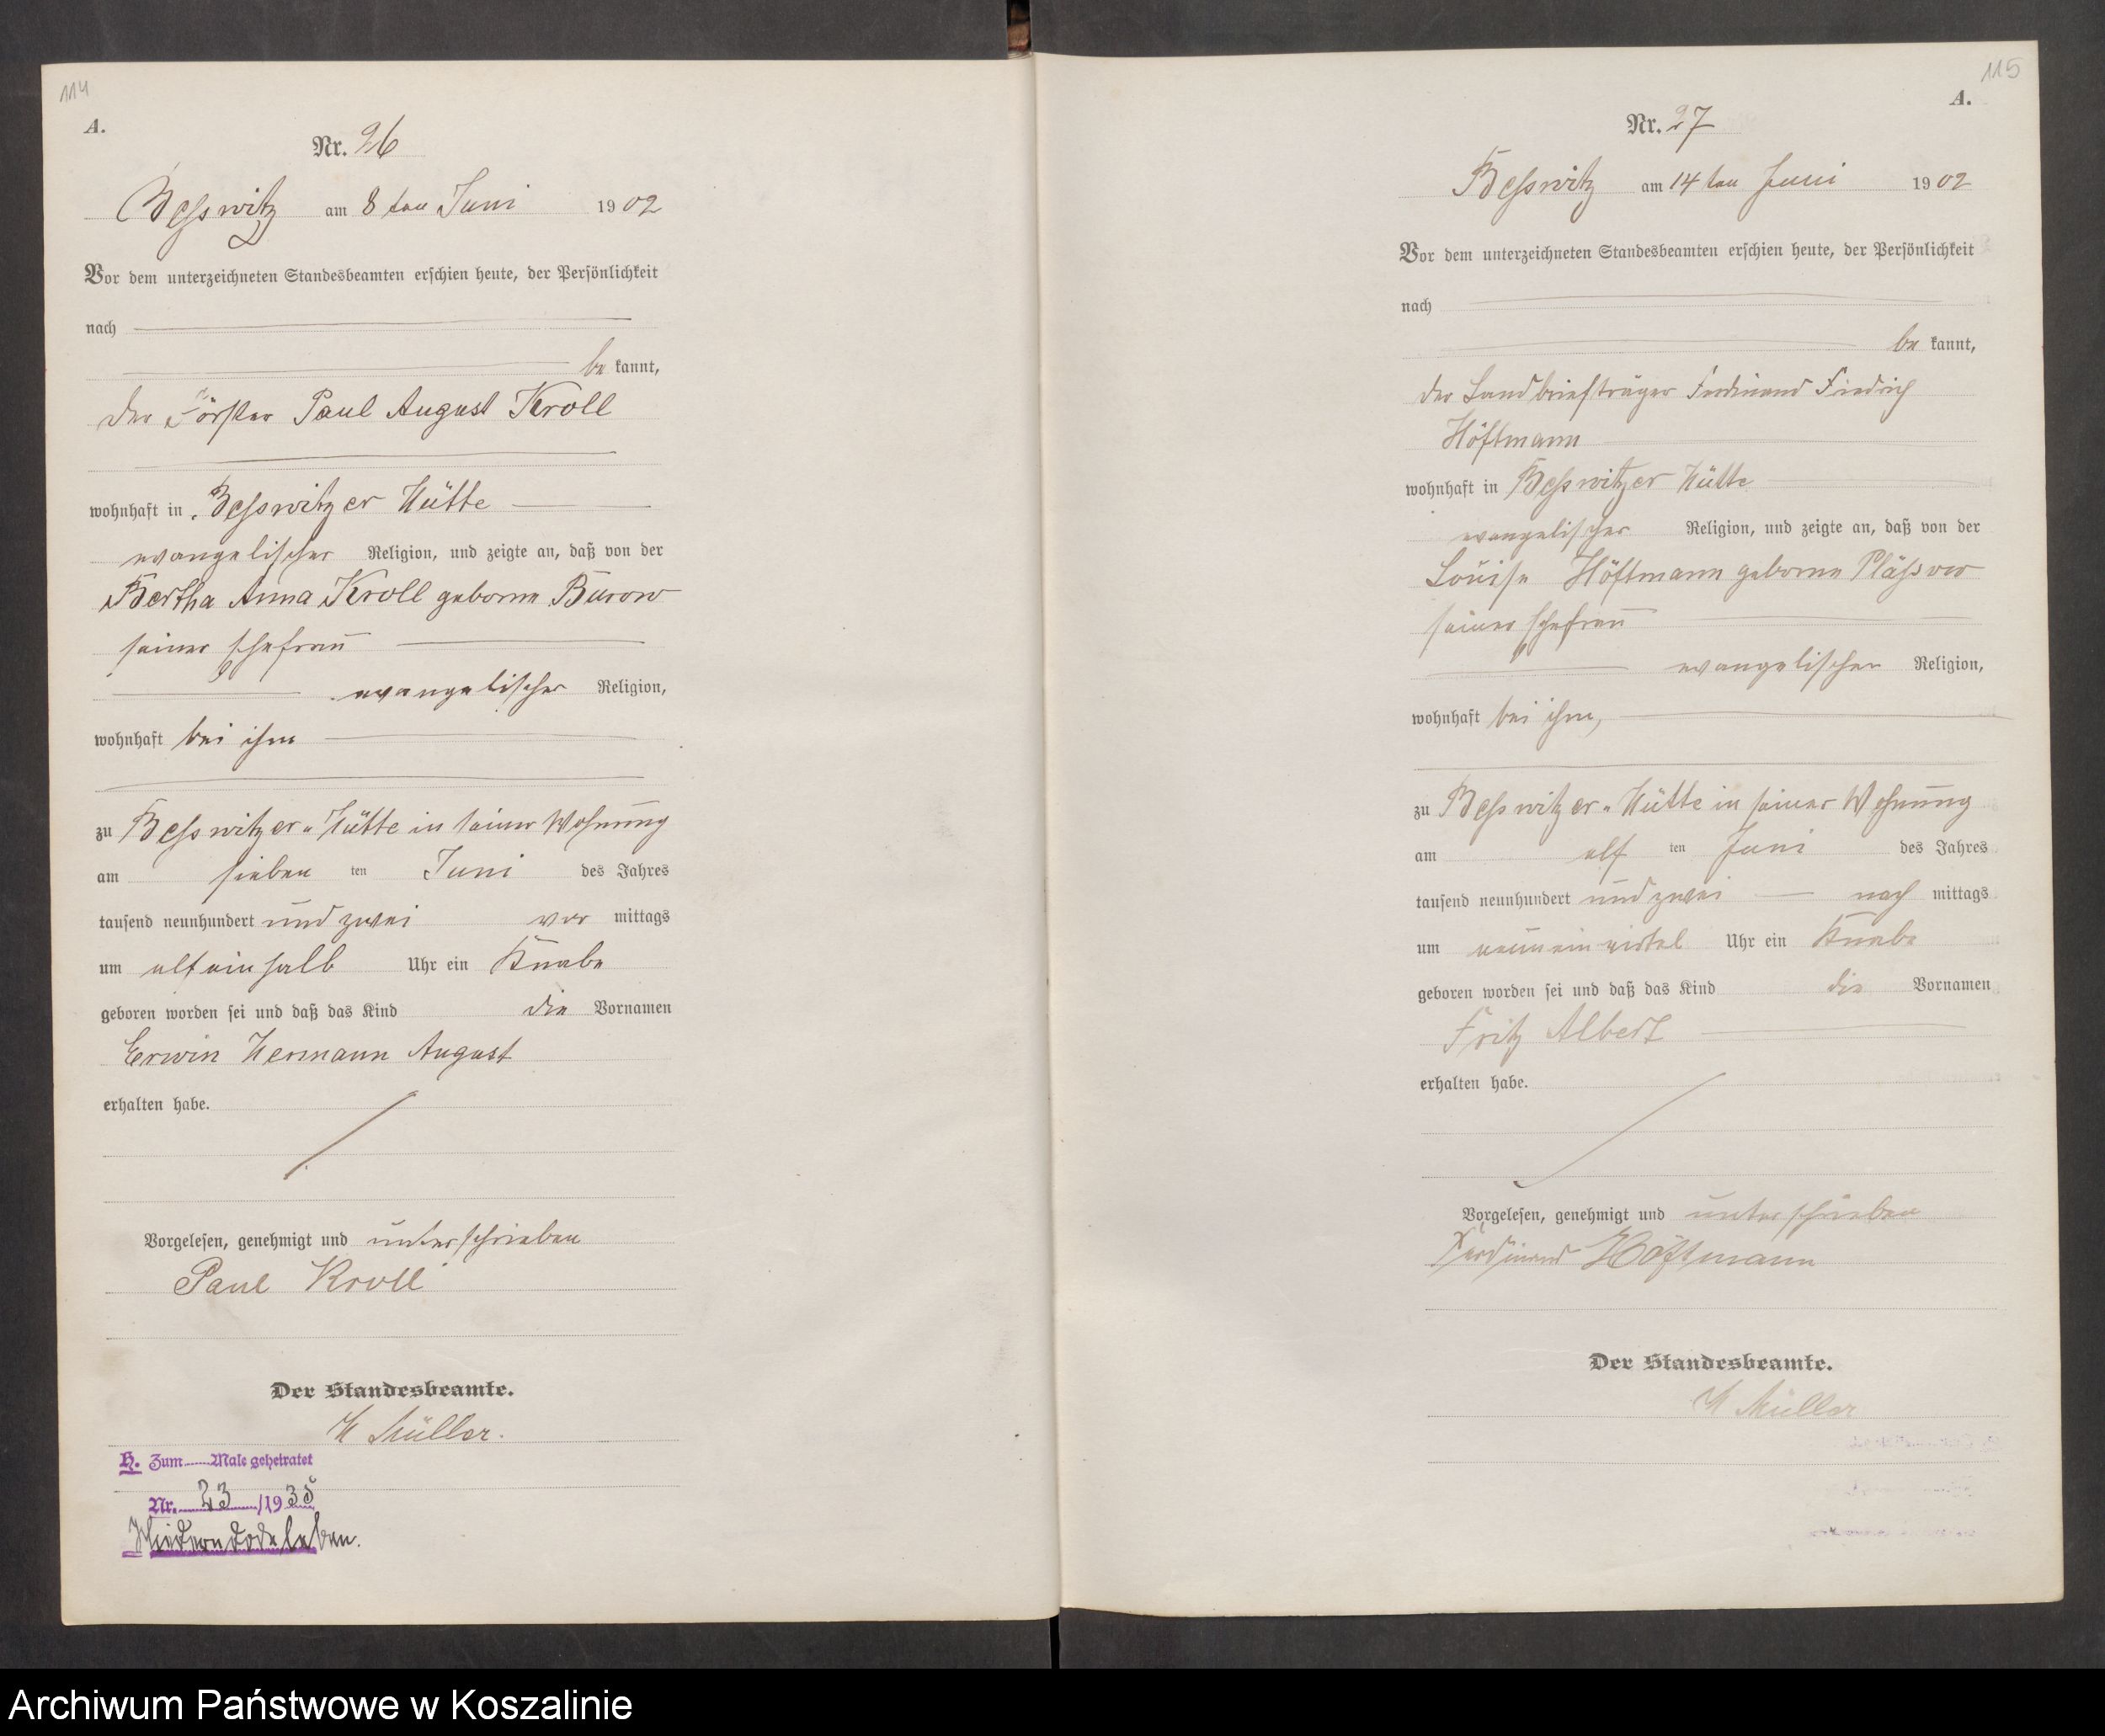 114
A.
Nr. 26
Beßwitz am 8 ten Juni 1902
Vor dem unterzeichneten Standesbeamten erschien heute, der Persönlichkeit
nach
be kannt,
der Förster Paul August Kroll
wohnhaft in Beßwitzer Hütte
evangelischer Religion, und zeigte an, daß von der
Bertha Anna Kroll geborne Burow
seiner Ehefrau
evangelischer Religion,
wohnhaft bei ihm
zu Beßwitzer-Hütte in seiner Wohnung
am sieben ten Juni des Jahres
tausend neunhundert und zwei vor mittags
um elfeinhalb Uhr ein Knabe
geboren worden sei und daß das Kind die Vornamen
Erwin Hermann August
erhalten habe.
Vorgelesen, genehmigt und unterschrieben
Paul Kroll
Der Standesbeamte.
H Müller.
H. Zum Male geheiratet
Nr. 23/1935
115
A.
Nr. 27
Beßwitz am 14 ten Juni 1902
Vor dem unterzeichneten Standesbeamten erschien heute, der Persönlichkeit
nach
be kannt,
der Landbriefträger Ferdinand Friedrich
Höftmann
wohnhaft in Beßwitzer Hütte
evangelischer Religion, und zeigte an, daß von der
Louise Höftmann geborne
seiner Ehefrau
evangelischer Religion,
wohnhaft bei ihm,
zu Beßwitzer-Hütte in seiner Wohnung
am elf ten Juni des Jahres
tausend neunhundert und zwei nach mittags
um neuneinviertel Uhr ein Knabe
geboren worden sei und daß das Kind die Vornamen
Fritz Albert
erhalten habe.
Vorgelesen, genehmigt und unterschrieben
Ferdinand Höftmann
Der Standesbeamte.
H Müller
Archiwum Państwowe w Koszalinie